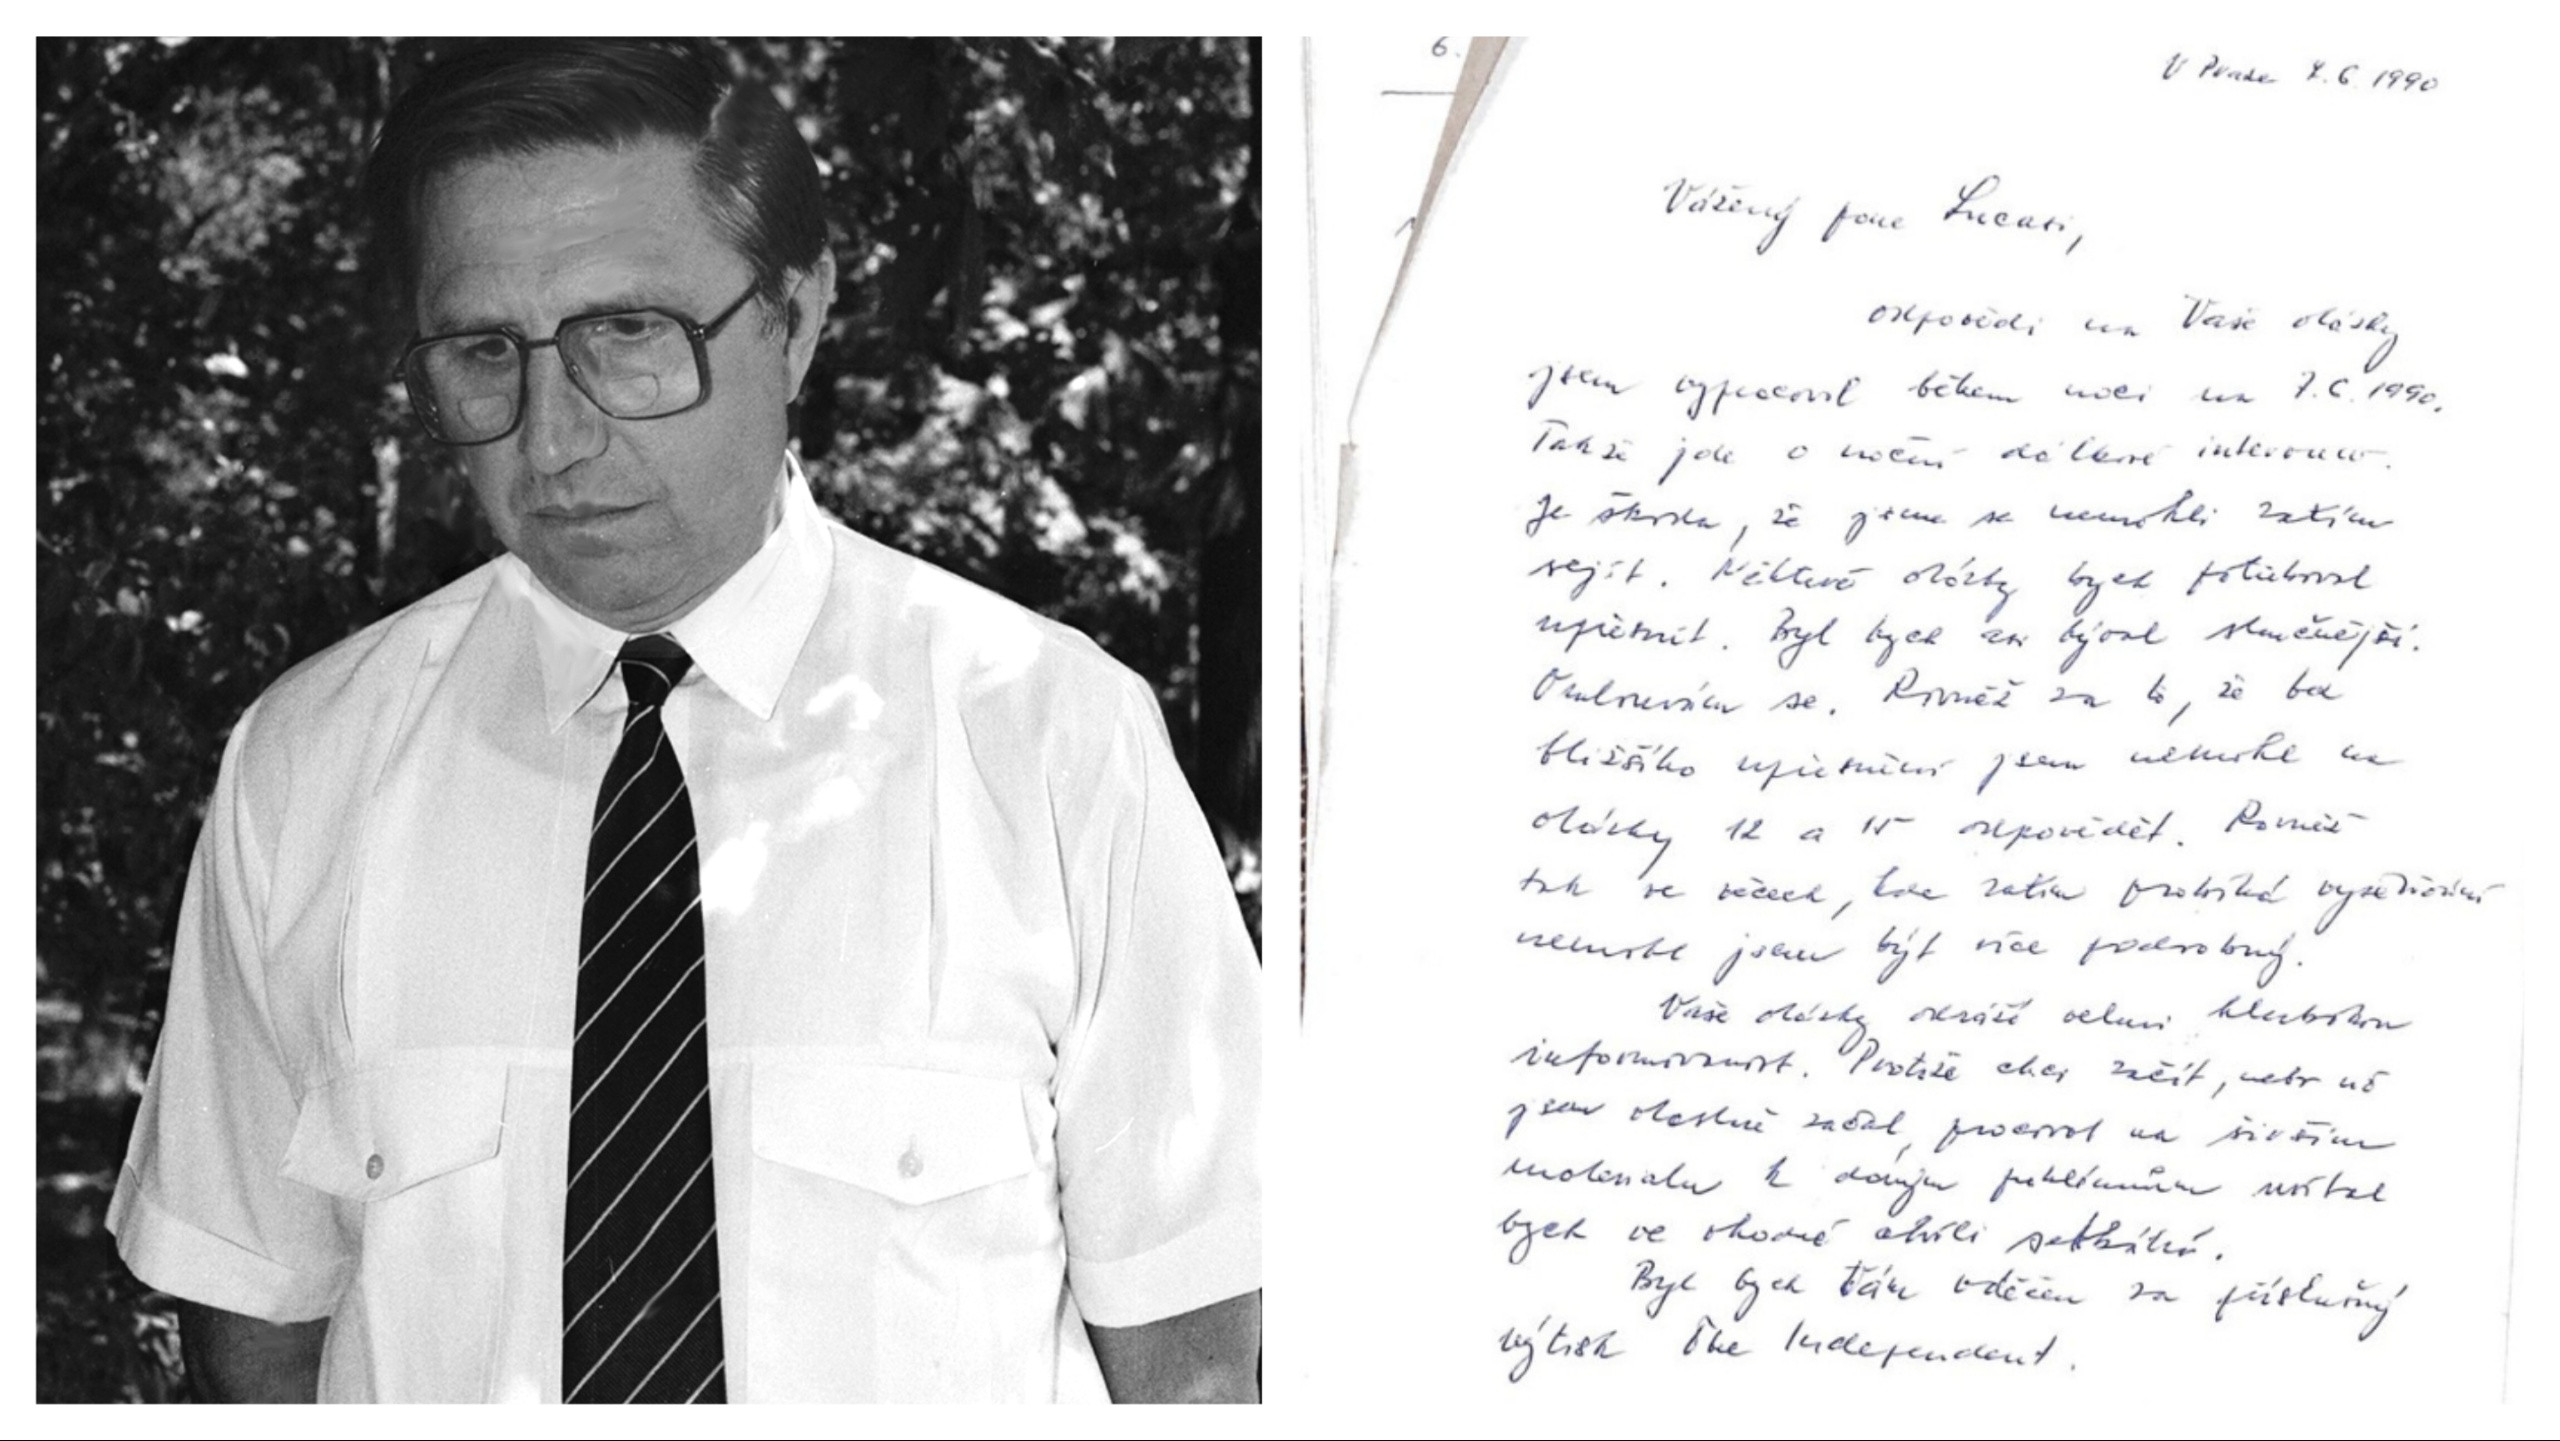 6.
V Praze 7.6.1990
Vážený pane Lucasi,
odpovědi na Vaše otázky
jsem vypracoval během noci na 7.6.1990.
Takže jde o noční dálkové interview.
Je škoda, že jsme se nemohli zatím
sejít. Některé otázky bych potřeboval
upřesnit. Byl bych asi býval stručnější.
Omlouvám se. Rovněž za to, že bez
bližšího upřesnění jsem nemohl na
otázky 12 a 15 odpovědět. Rovněž
tak ve věcech, kde zatím probíhá vyšetřování
nemohl jsem být více podrobný.
Vaše otázky odráží velmi hlubokou
informovanost. Protože chci začít, nebo už
jsem vlastně začal, pracovat na širším
materialu k daným problémům uvítal
bych ve vhodné chvíli setkání.
Byl bych Vám vděčen za příslušný
výtisk The Independent.